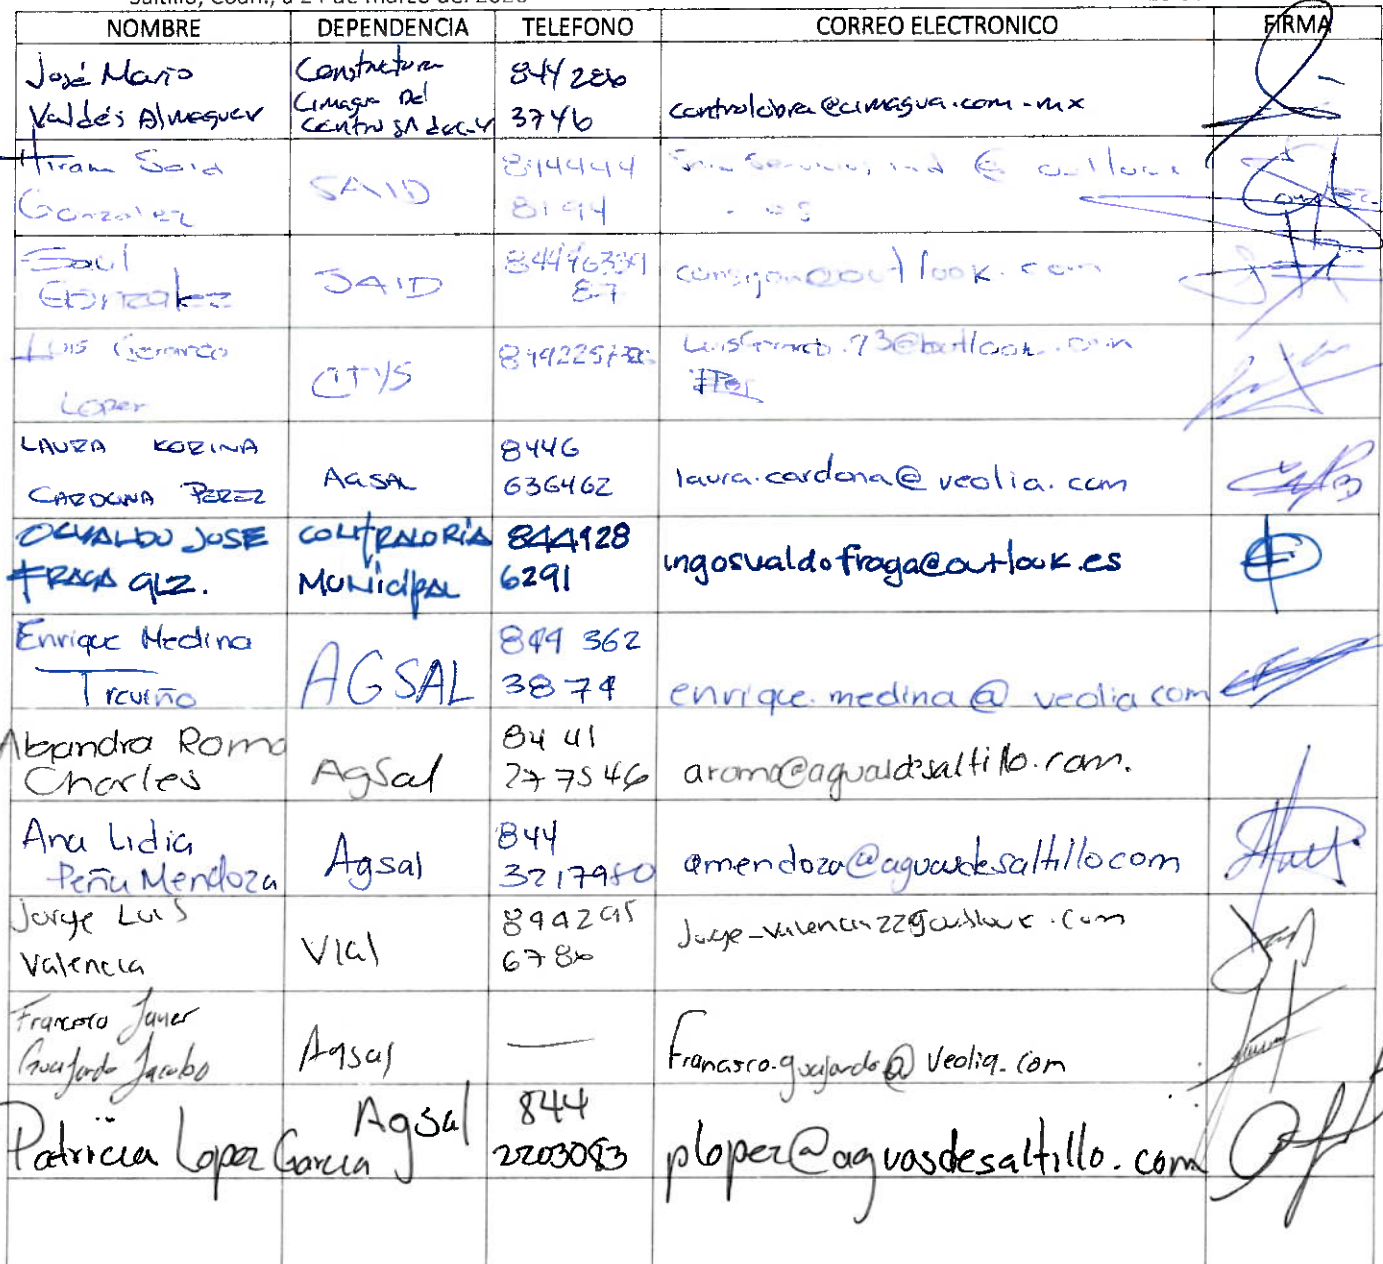 NOMBRE DEPENDENCIA TELEFONO CORREO ELECTRONICO FIRMA
José Mario
Valdés Almaguer
Cimagua Del
Centro SA de C.V
844 286
3746
controlobra@cimagua.com.mx
Hiram Said
Gonzalez
SAID
844444
8194
Saul
Gonzalez
SAID
87
Luis Gerardo
Lopez
CITYS
LAURA KORINA
CARDONA PEREZ
AGSAL
8446
636462
laura.cardona@veolia.com
OSVALDO JOSE
FRAGA GLZ.
CONTRALORIA
MUNICIPAL
844128
6291
ingosvaldofraga@outlook.es
Enrique Medina
Treviño
AGSAL
844 362
3874
enrique.medina@veolia.com
Alejandra Roma
Charles
AgSal
84 41
277546
aroma@aguasdesaltillo.com.
Ana Lidia
Peña Mendoza
Agsal
844
3217980
amendoza@aguasdesaltillo.com
Jorge Luis
Valencia
Vial
844295
6780
Jorge_valencia22@outlook.com
Francisco Javier
Guajardo Jacobo
Agsal
—
Francisco.guajardo@Veolia.com
Patricia Lopez Garcia
Agsal
844
2203083
plopez@aguasdesaltillo.com